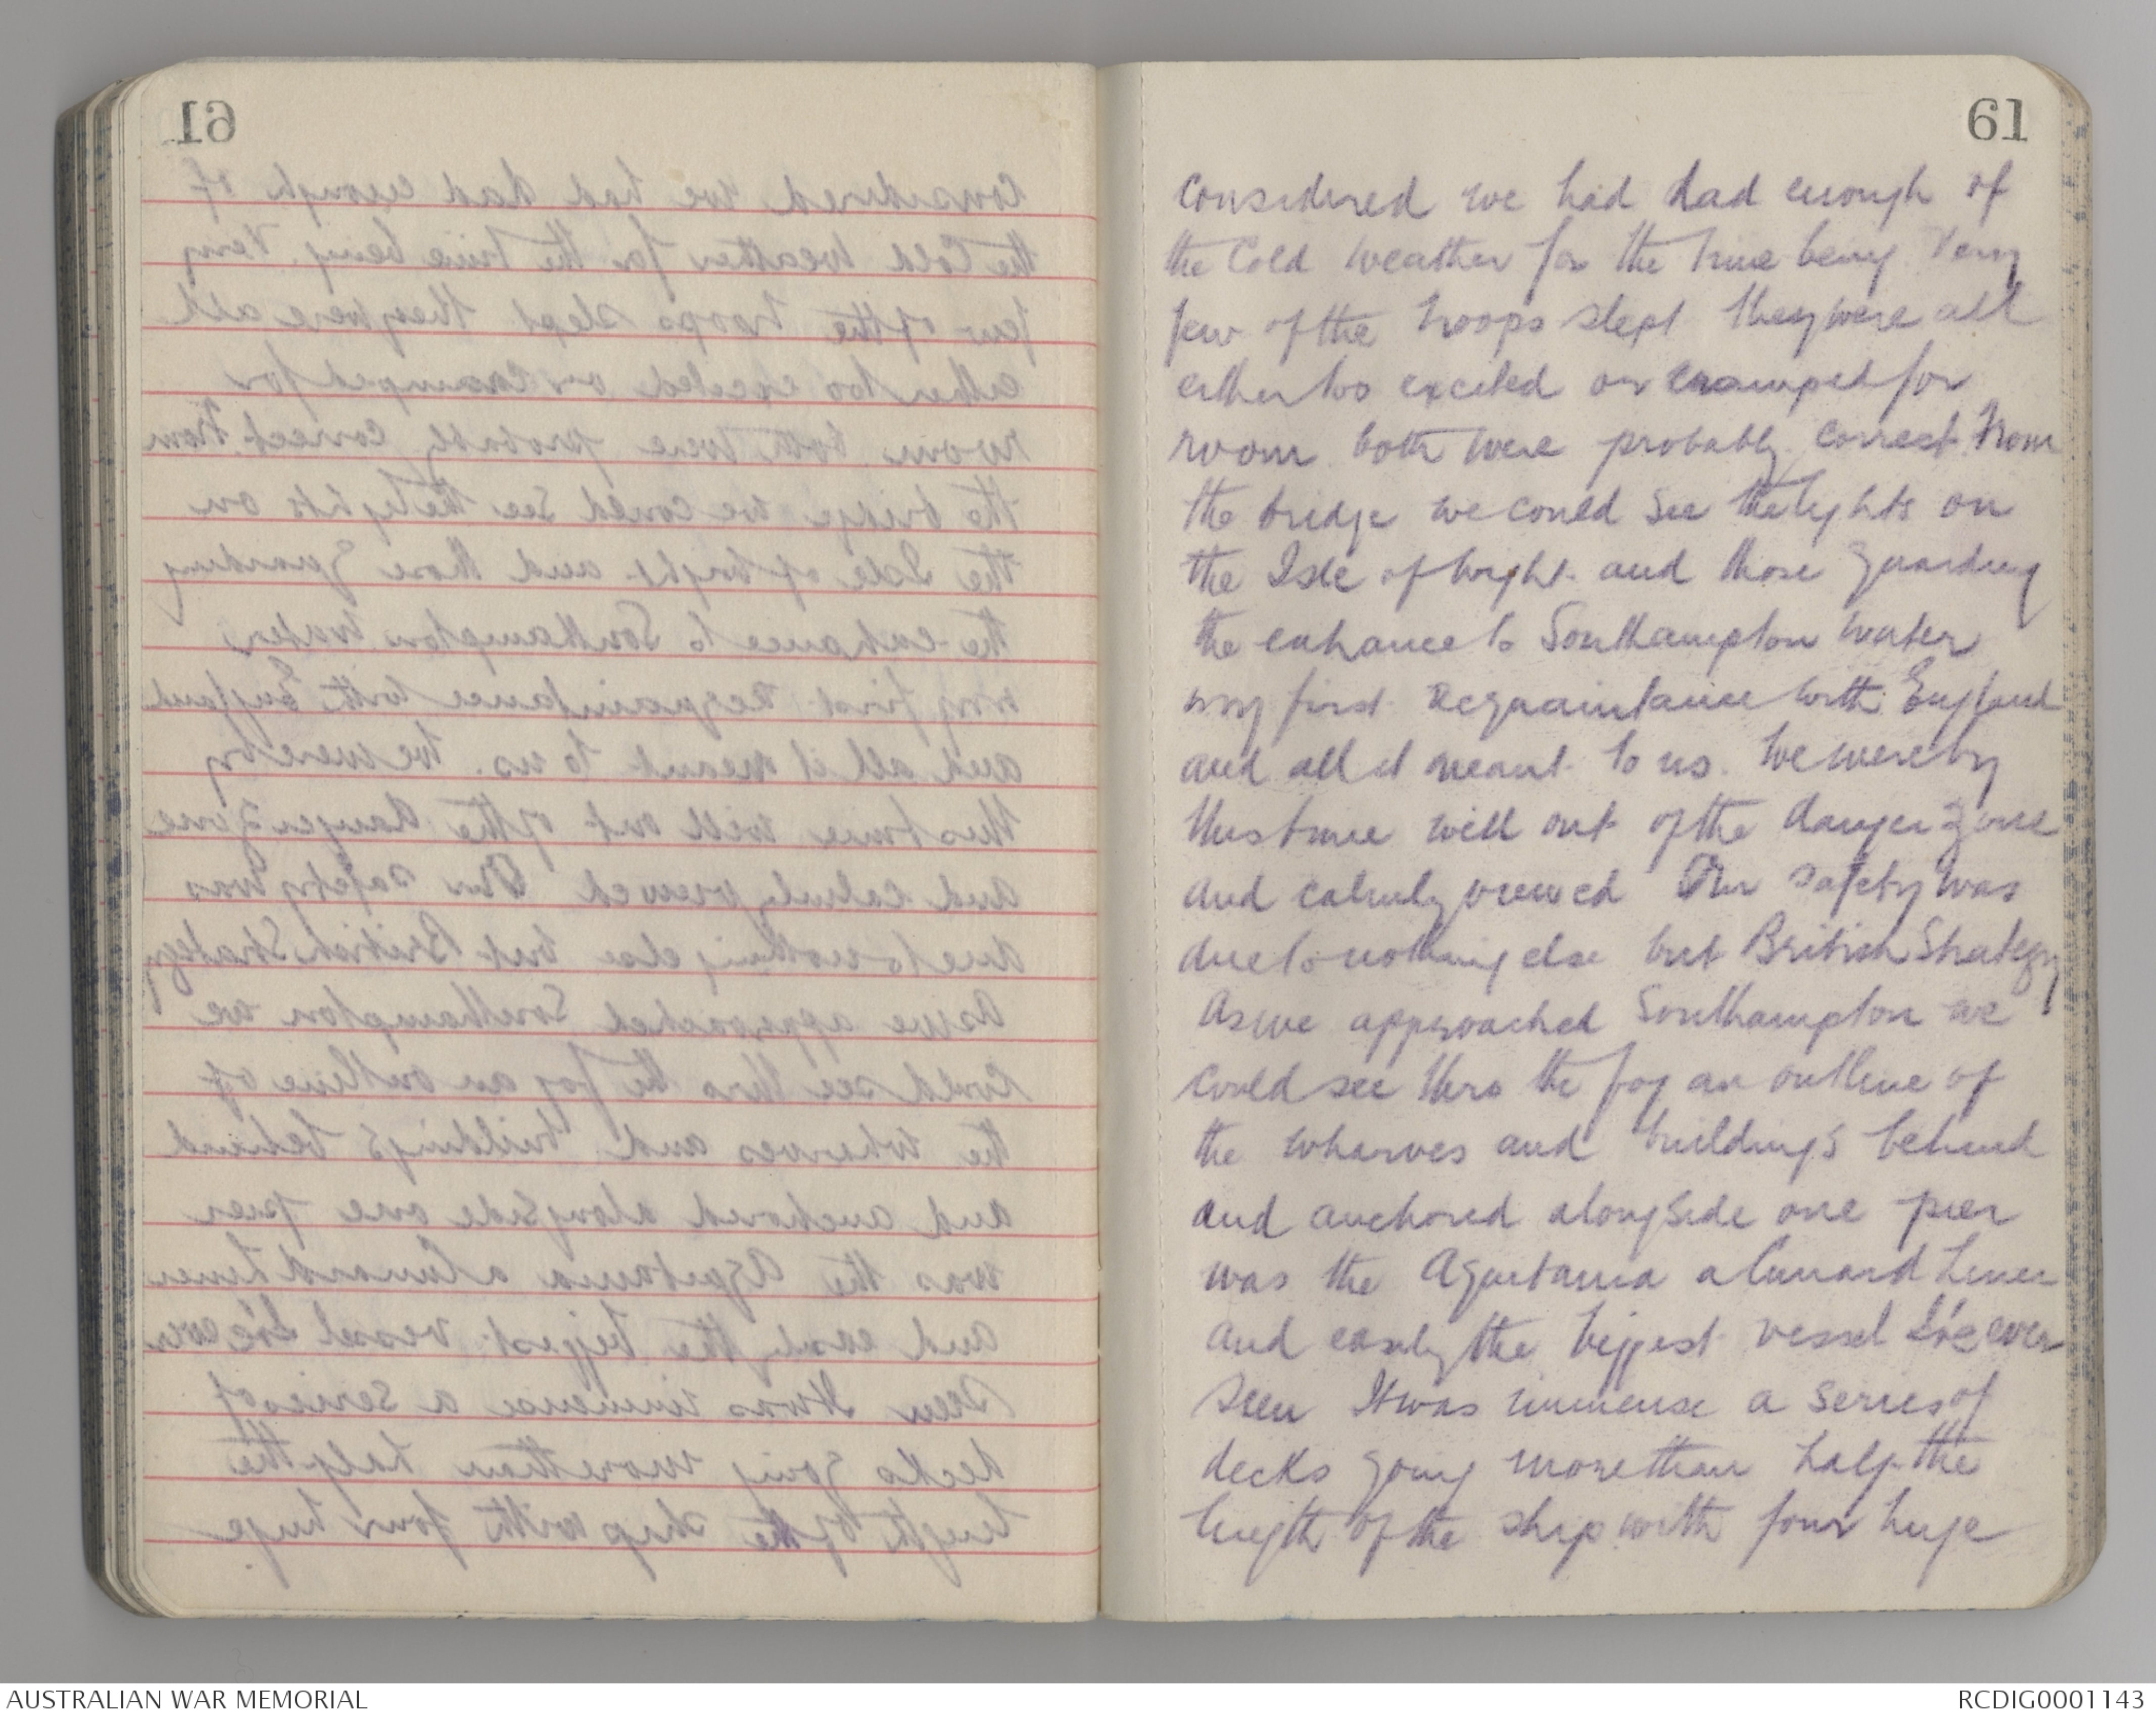 61
considered we had had enough of
the Cold weather for the time being. Very
few of the troops slept they were all
either too excited or cramped for
room both were probably correct. From
the bridge we could see the lights on
the Isle of Wight and those guarding
the entrance to Southampton water
my first acquaintance with England
and all it meant to us. We were by
this time well out of the danger zone
and calmly viewed Our safety was
due to nothing else but British Strategy
As we approached Southampton we
could see thro the fog an outline of
the wharves and buildings behind
and anchored alongside one pier
was the Aquitania a Cunard Liner
and easily the biggest vessel I've ever
seen It was immense a series of
decks going more than half the
length of the ship with four huge
AUSTRALIAN WAR MEMORIAL
RCDIG0001143